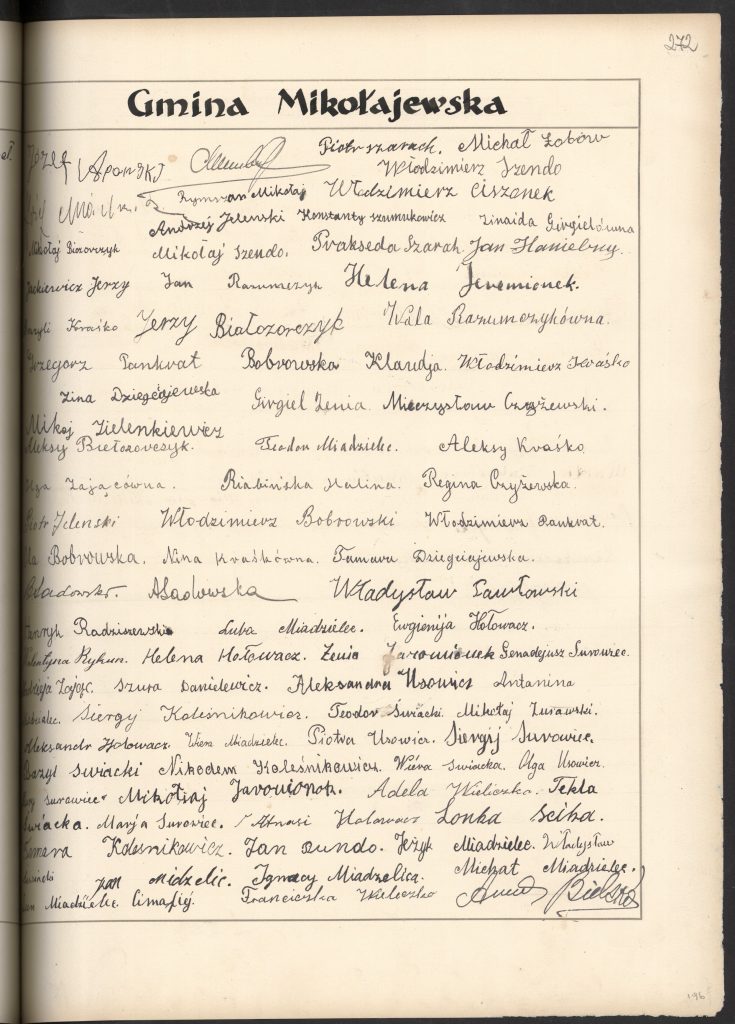 272
Gmina Mikołajewska
Józef Piotr Szarach. Michał Łobów
Włodzimierz Szendo
Rymszan Mikołaj Włodzimierz Ciszonek
Andrzej Jelenski Konstanty Szumukowicz Zinaida Girgielówna
Mikołaj Szendo. Prakseda Szarah. Jan Hanielny.
Jackiewicz Jerzy Jan Razumczyk Helena Jeremionek.
Kraśko Jerzy Białozorczyk Wala Razumczykówna.
Grzegorz Pankrat Bobrowska Klaudja. Włodzimierz Kraśko
Zina Dziegciajewska Girgiel Zenia. Mieczysław Czyżewski.
Mikoj Zielenkiewicz
Aleksy Biełozorczyk. Teodor Miadzielec. Aleksy Kraśko
Olga Zającówna. Riabińska Halina. Regina Czyżewska.
Piotr Jelenski Włodzimierz Bobrowski Włodzimierz Pankrat.
Ila Bobrowska. Nina Kraśkówna. Tamara Dziegciajewska.
BSadowski. ASadowska Władysław Pawłowski
Henryk Radziszewski Luba Miadzielec. Ewgienija Hołowacz.
Walentyna Rykun. Helena Hołowacz. Zenia Jaromionek Genadejusz Surowiec.
Zając. Szura Danielewicz. Aleksandra Usowicz Antanina
Miadzielec. Siergy Koleśnikowicz. Teodor Świacki. Mikołaj Żurawski.
Aleksandr Hołowacz. Wiera Miadzielec. Piotra Usowicz. Siergij Surowiec.
Bazyl Swiacki Nikodem Koleśnikowicz. Wiera Swiacka. Olga Usowicz.
Surawiec Mikołaj Jaromionok. Adela Wieliczko. Tekla
Świacka. Marja Surowiec. Afnasi Hołowacz Lonka Sciba.
Tamara Kolesnikowicz. Jan Dundo. Jeżyk Miadzielec. Władysław
Jan Midzelic. Ignacy Miadzelica. Michał Miadzielec.
Jan Miadzielec. Cimafiej. Franciszka Wieliczko
196